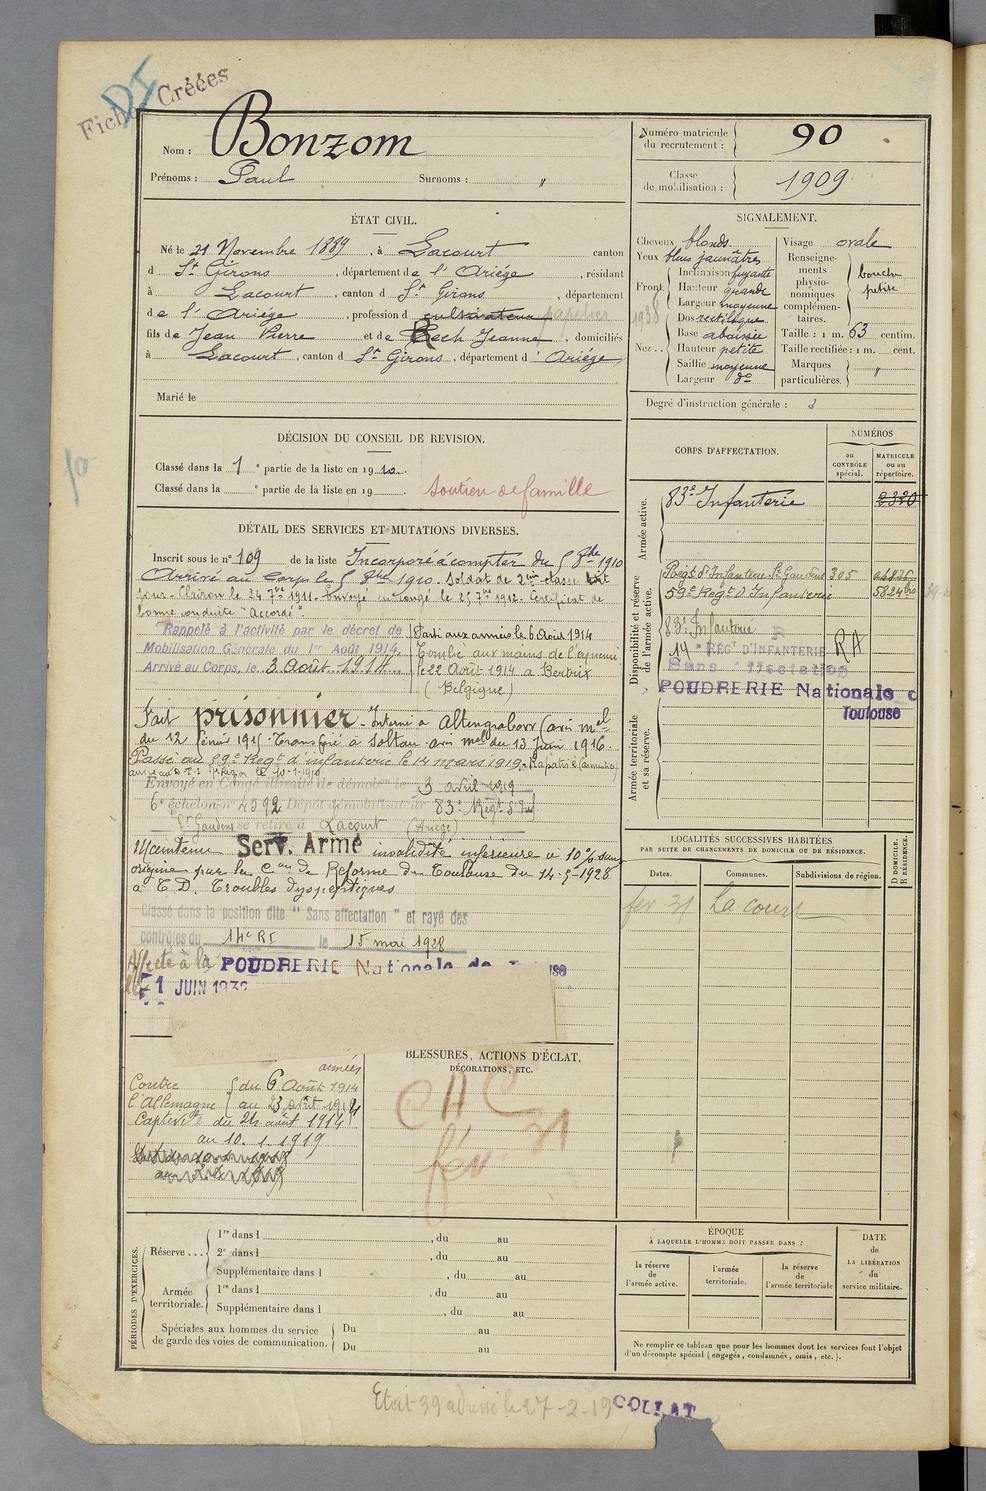 Fiches Créées
DI
Nom : Bonzom
Prénoms : Paul Surnoms : "
Numéro matricule du recrutement : 90
Classe de mobilisation : 1909
ÉTAT CIVIL.
Né le 21 Novembre 1889, à Lacourt canton
d St Girons, département de l'Ariège, résidant
à Lacourt, canton d St Girons, département
de l'Ariège, profession d cultivateur papetier
fils de Jean Pierre et de Rech Jeanne, domiciliés
à Lacourt, canton d St Girons, département d'Ariège
Marié le
SIGNALEMENT.
Cheveux blonds
Yeux bleus jaunâtres
Front : Inclinaison fuyante
Hauteur grande
Largeur moyenne
Nez .. Dos rectiligne
Base abaissée
Hauteur petite
Saillie moyenne
Largeur do
1938
Visage ovale
Renseignements physionomiques complémentaires. bouche petite
Taille : 1 m. 63 centim.
Taille rectifiée : 1 m. cent.
Marques particulières. "
Degré d'instruction générale : 3
DÉCISION DU CONSEIL DE REVISION.
Classé dans la 1e partie de la liste en 1910.
Classé dans la e partie de la liste en 19
soutien de famille
DÉTAIL DES SERVICES ET MUTATIONS DIVERSES.
Inscrit sous le n° 109 de la liste Incorporé à compter du 5 8bre 1910
Arrivé au corps le 5 8bre 1910. Soldat de 2me classe
jour. Clairon le 24 7bre 1911. Envoyé en congé le 25 7bre 1912. Certificat de
bonne conduite "Accordé".
Rappelé à l'activité par le décret de
Mobilisation Générale du 1er Août 1914.
Arrivé au Corps, le 3 Août 1914
Parti aux armées le 6 Août 1914
Tombé aux mains de l'ennemi
le 22 Août 1914 à Bertrix
(Belgique)
Fait prisonnier - Interné à Altengrabow (avis mel
du 12 février 1915. Transféré à Soltau avis mel du 13 Juin 1916.
Passé au 59e Regt d'infanterie le 14 mars 1919. Rapatrié (armistice)
Envoyé en Congé illimité de démobn le 3 avril 1919
6e échelon n° 4592 Dépôt démobilisateur 83e Regt d'Inf
St Gaudens se retire à Lacourt (Ariège)
Maintenu Serv. Armé invalidité inférieure à 10% sans
origine par la Con de Réforme de Toulouse du 14-5-1928
à T.D. Troubles dyspeptiques
Classé dans la position dite " Sans affectation " et rayé des
contrôles du 14e RI le 15 mai 1928
Affecté à la POUDRERIE Nationale de
1 JUIN 193
CORPS D'AFFECTATION.
NUMÉROS
au CONTRÔLE spécial.
MATRICULE ou au répertoire.
Armée active.
83e Infanterie 2320
Disponibilité et réserve de l'armée active.
Regt d'Infanterie St Gaudens 305
59e Regt d'Infanterie 5824 bis
83e Infanterie
14e REGt D'INFANTERIE RA
Sans affectation
POUDRERIE Nationale
Toulouse
Armée territoriale et sa réserve.
LOCALITÉS SUCCESSIVES HABITÉES
PAR SUITE DE CHANGEMENTS DE DOMICILE OU DE RÉSIDENCE.
Dates. Communes. Subdivisions de région. D DOMICILE. R RÉSIDENCE.
fev 31 Lacourt
armées
Contre l'Allemagne du 6 Août 1914
au 23 août 1914
Captivité du 24 août 1914
au 10.1.1919
BLESSURES, ACTIONS D'ÉCLAT,
DÉCORATIONS, ETC.
CAC
fév. 31
PÉRIODES D'EXERCICES.
Réserve ... 1re dans l , du au
2e dans l , du au
Supplémentaire dans l , du au
Armée territoriale. 1re dans l , du au
Supplémentaire dans l , du au
Spéciales aux hommes du service de garde des voies de communication. Du au
Du au
ÉPOQUE
À LAQUELLE L'HOMME DOIT PASSER DANS :
la réserve de l'armée active.
l'armée territoriale.
la réserve de l'armée territoriale
DATE de LA LIBÉRATION du service militaire.
Ne remplir ce tableau que pour les hommes dont les services font l'objet
d'un décompte spécial (engagés, condamnés, omis, etc.).
COLLAT